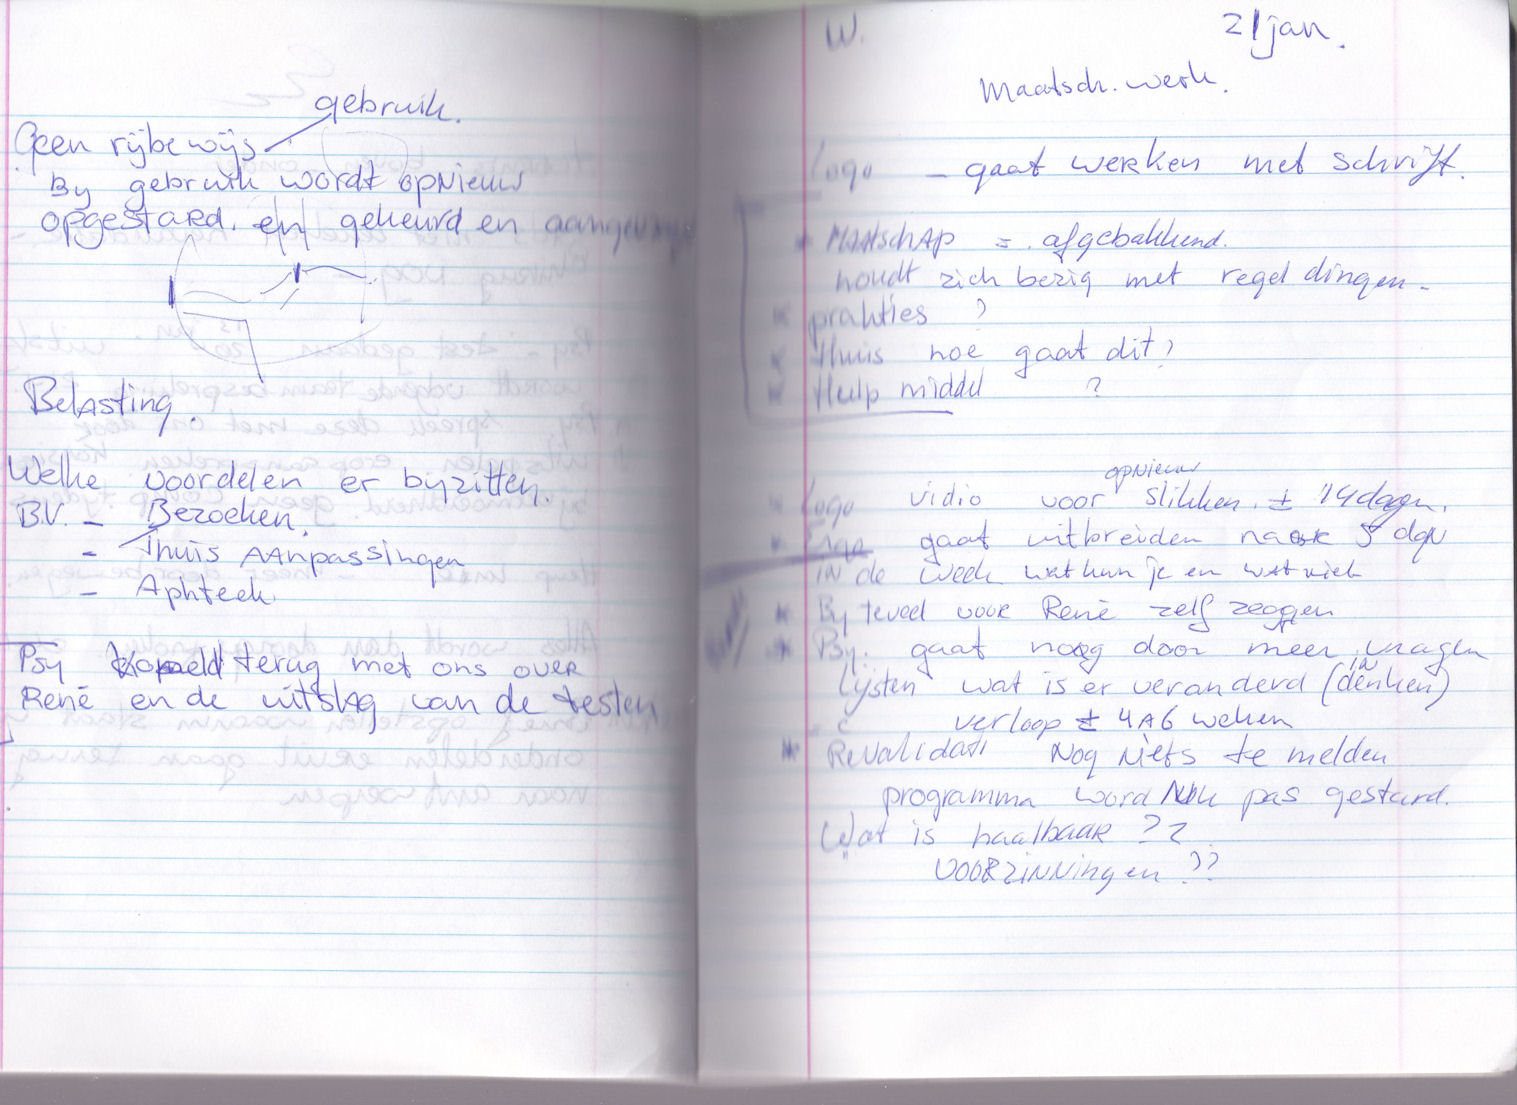 gebruik.
Geen rijbewijs
By gebruik wordt opnieuw
opgestard. en gekeurd en
Belasting.
Welke voordelen er byzitten.
B.V. - Bezoeken.
- Thuis AAnpassingen
- Aphteek
Psy terug met ons over
René en de uitslag van de testen
W. 21 jan.
Maatsch. werk.
Logo - gaat werken met schrift.
* MAAtschAp = afgebakkend.
houdt zich bezig met regel dingen -
* prakties ?
* Thuis hoe gaat dit?
* Hulp middel ?
opnieuw
* Logo vidio voor slikken. ± 14 dagen.
* Ergo gaat uitbreiden naar 5 dgn
IN de week wat kun je en wat niet
* By teveel voor René zelf zeggen
* Psy: gaat nog door meer vragen
Lijsten wat is er veranderd (IN denken)
verloop ± 4 A 6 weken
* Revalidati Nog Niets te melden
programma word pas gestard.
Wat is haalbaar ??
VOORZINNingen ??